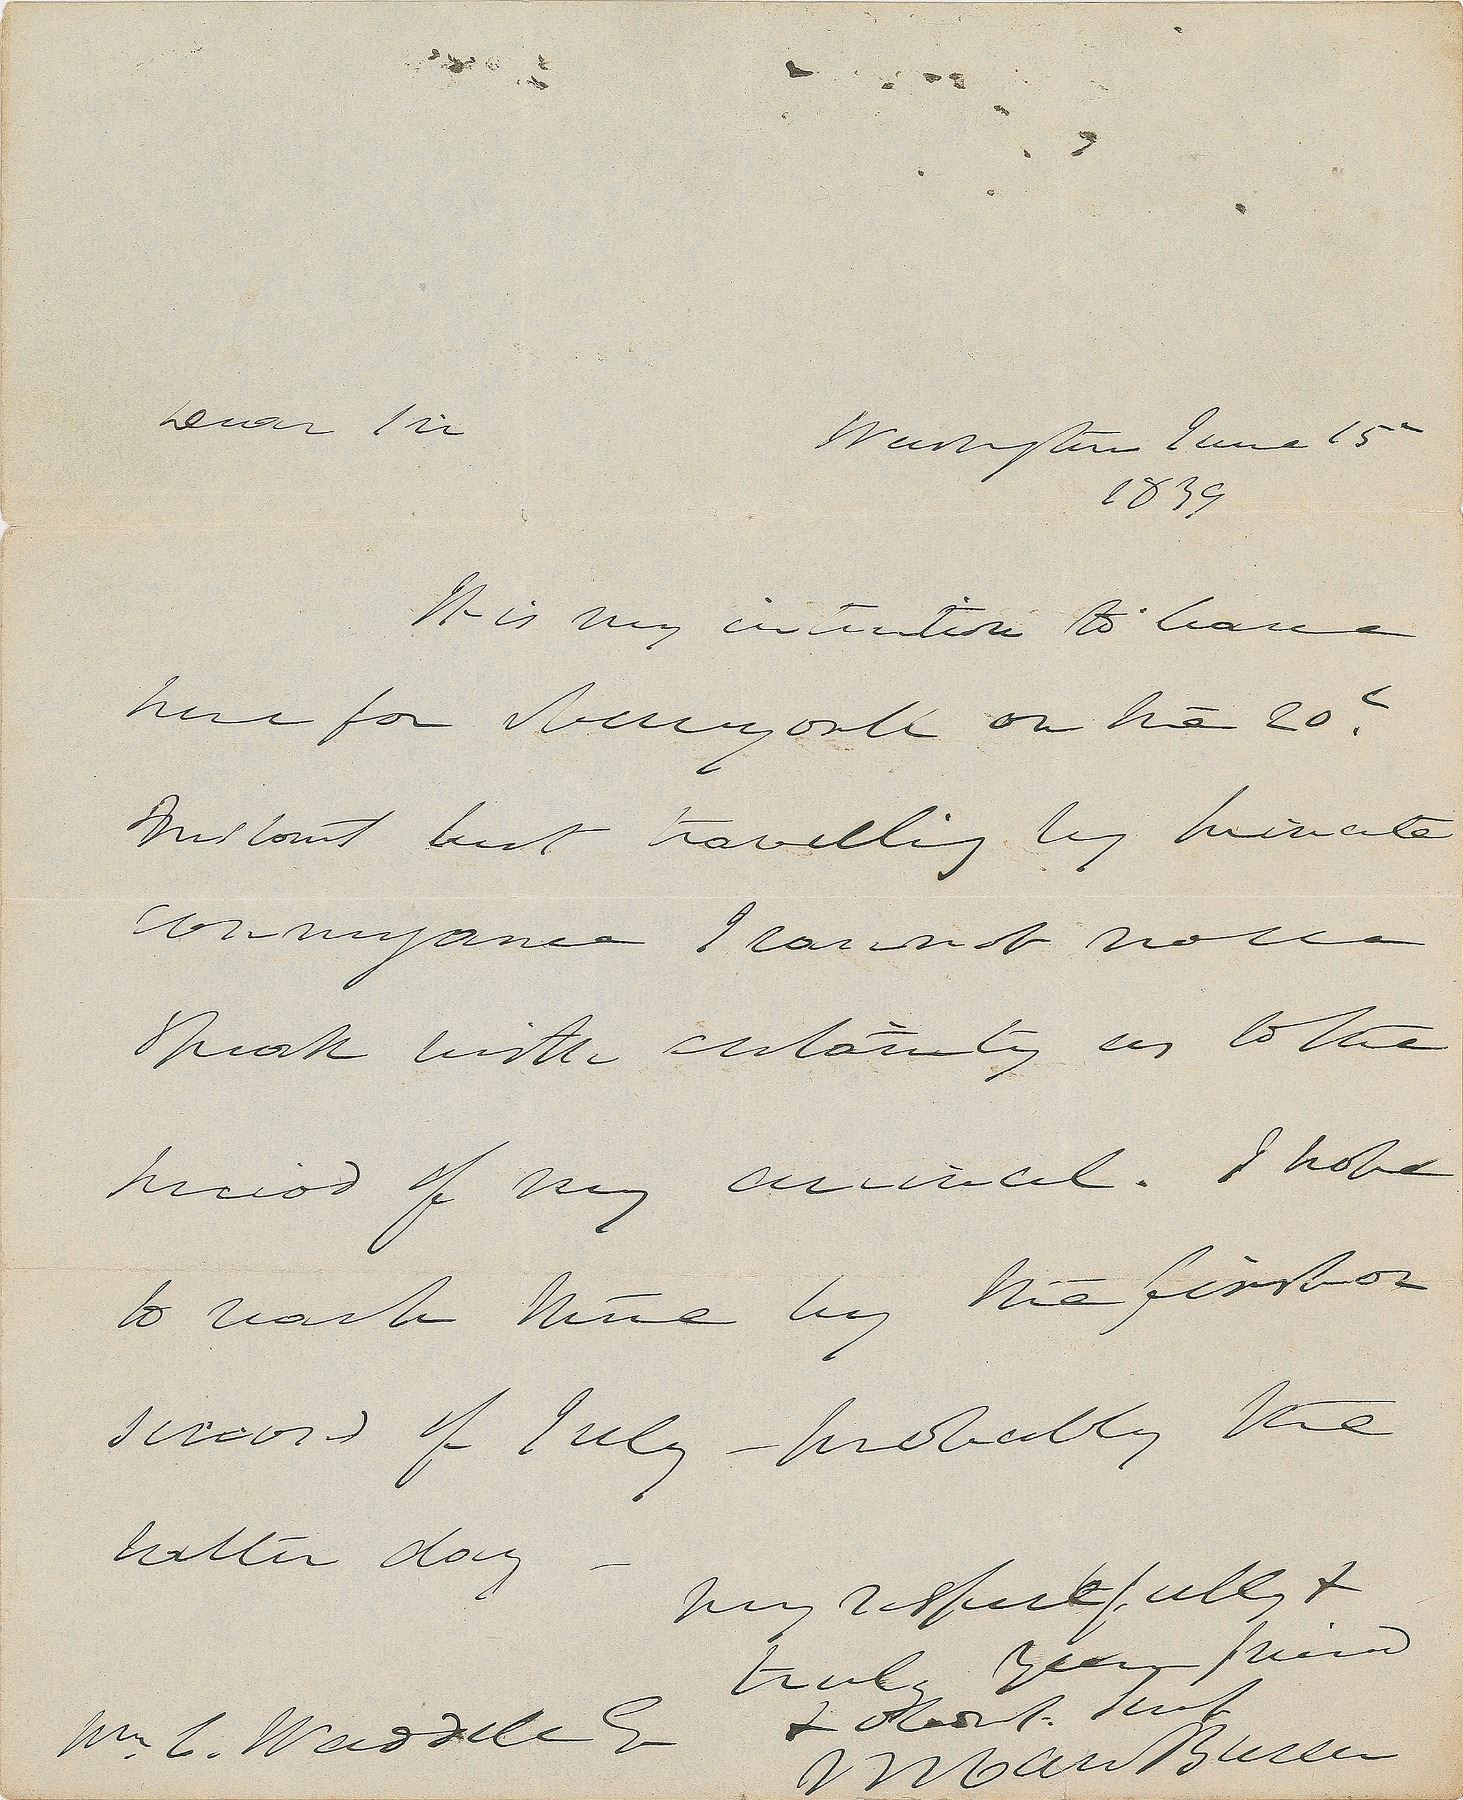 Dear Sir
Washington June 15th
1839
It is my intention to leave
here for Newyork on the 20th
Instant but travelling by private
conveyance I cannot now
speak with certainty as to the
period of my arrival. I hope
to reach there by the first or
second of July – probably the
latter day –
very respectfully &
truly your friend
& obedt. Servt
M Van Buren
Wm. C. Waddle Eq